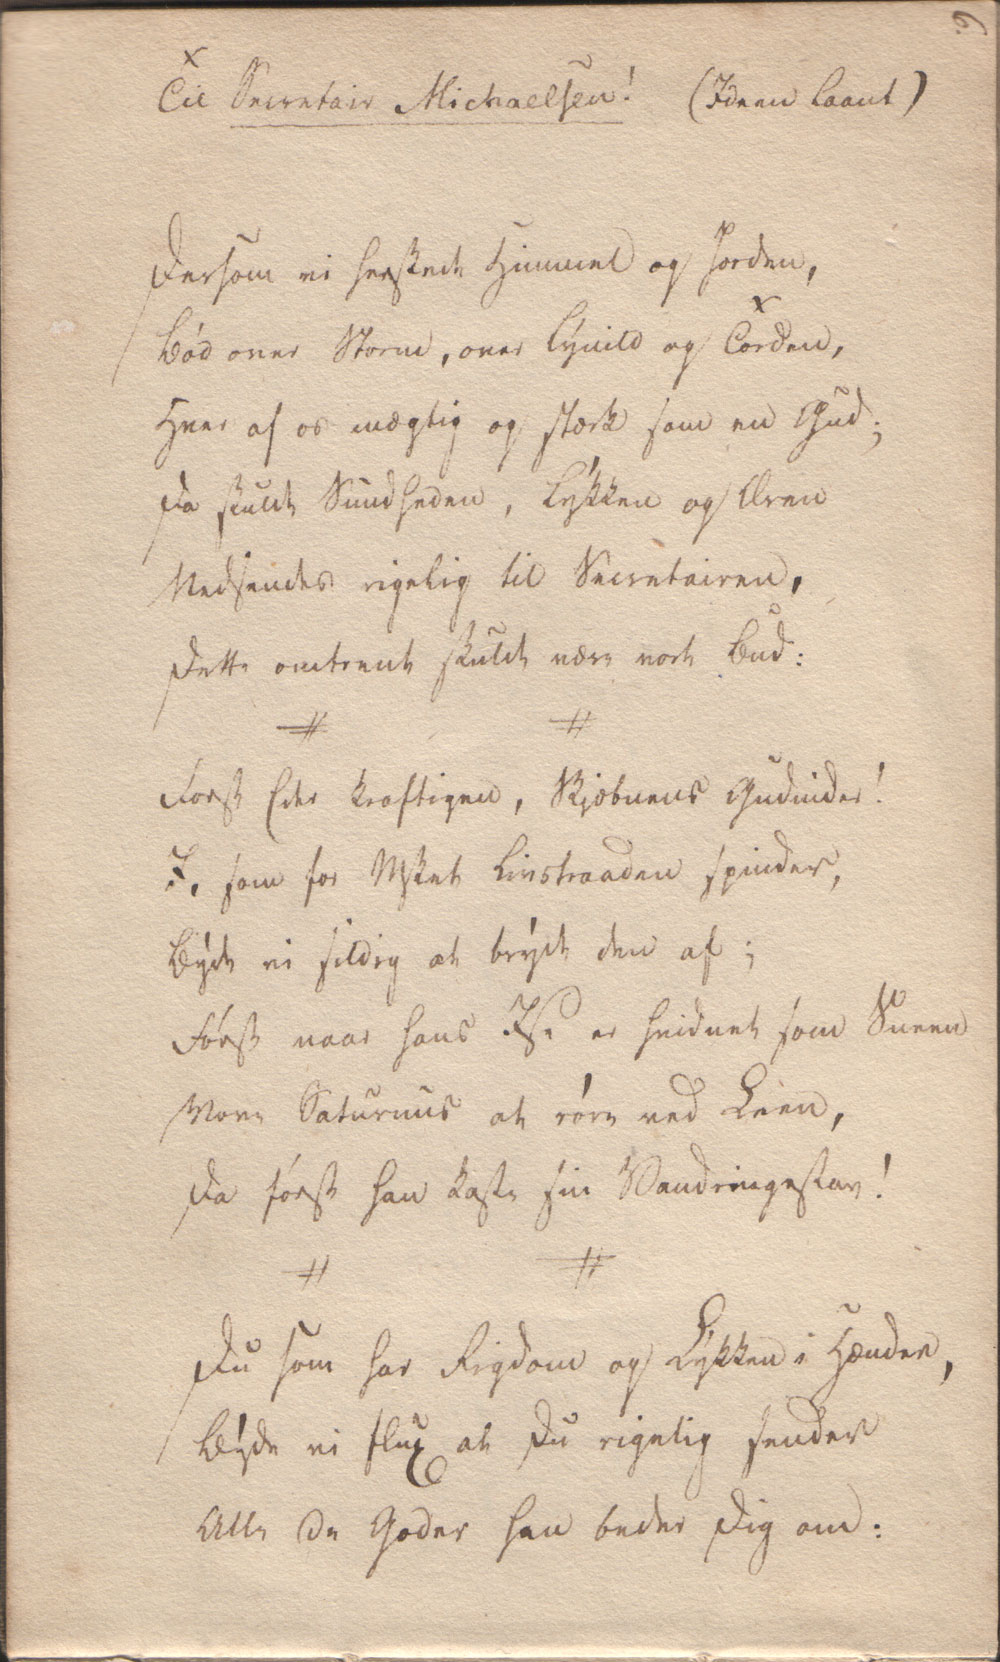 6.
Til Secretair Michaelsen! (Ideen laant)
Dersom vi herskede Himmel og Jorden,
Bød over Storm, over Lynild og Torden,
Hver af os mægtig og stærk som en Gud;
Da skulde Sundheden, Lykken og Æren
Nedsendes rigelig til Secretairen,
Dette omtrent skulde være vort Bud:
Først Eder kraftigen, Skjæbnens Gudinder!
I, som for Msket Livstraaden spinder,
Bÿde vi sildig at brÿde den af;
Først naar hans Isse er hvidnet som Sneen
Vove Saturnus at røre ved Leen,
Da først han kaste sin Vandringsstav!
Du som har Rigdom og Lÿkken i Hænder,
Bÿde vi flux at Du rigelig sender
Alle de Goder han beder Dig om: